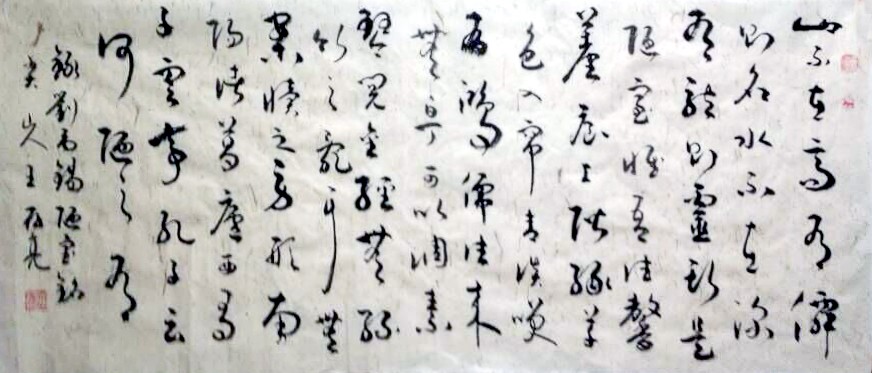 山不在高有僊
則名水不在深
有龍則靈斯是
陋室惟吾德馨
苔痕上階綠草
色入帘青談笑
有鴻儒往來
無白丁可以調素
琴閱金經無絲
竹之亂耳無
案牘之勞形南
陽諸葛廬西蜀
子雲亭孔子云
何陋之有
錄劉禹錫陋室銘
山人王亮